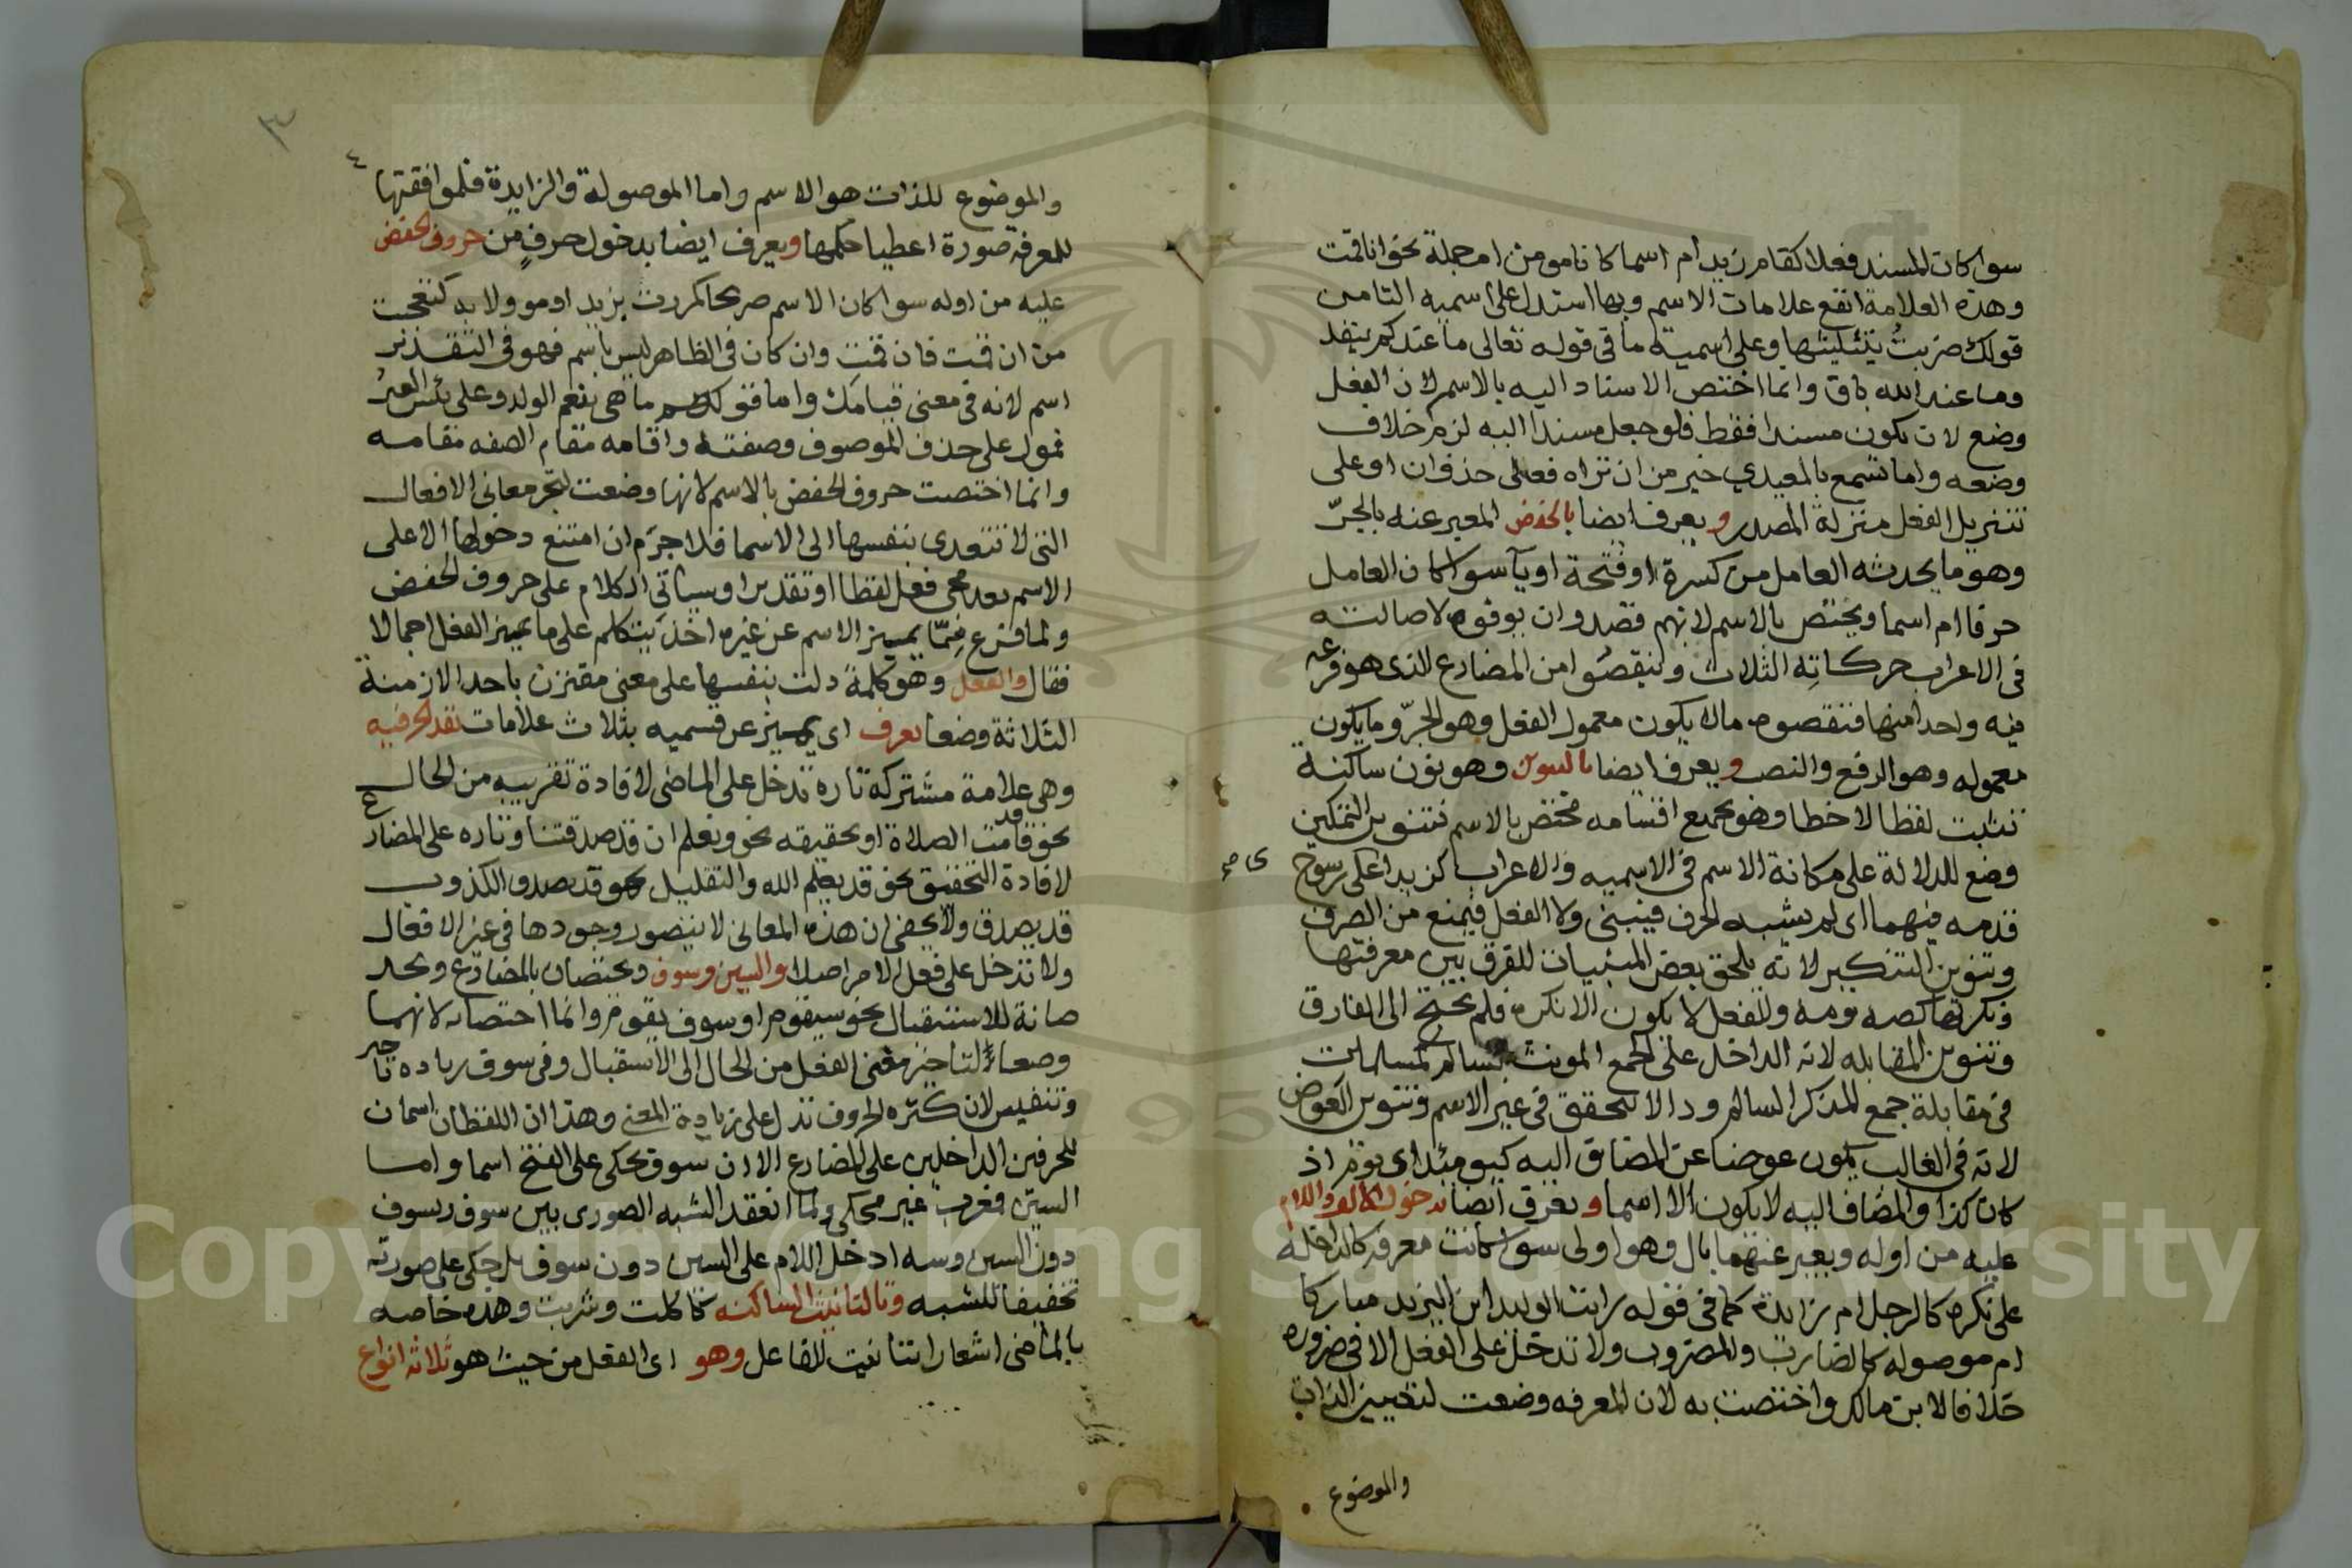 سوا كان المسند فعلا كقام زيد ام اسما كانا مومن ام جملة نحو انا قمت
وهذه العلامة انفع علامات الاسم وبها استدل على اسمية التا من
قولك ضربت بتثليثها وعلى اسمية ما في قوله تعالى ما عندكم ينفد
وما عند الله باق وانما اختص الاسناد اليه بالاسم لان الفعل
وضع لان يكون مسندا فقط فلو جعل مسندا اليه لزم خلاف
وضعه واما تسمع بالمعيدي خير من ان تراه فعلى حذف ان او على
تنزيل الفعل منزلة المصدر ويعرف ايضا بالخفض المعبر عنه بالجرّ
وهو ما يحدثه العامل من كسرة او فتحة او يآ سوا كان العامل
حرفا ام اسما ويختص بالاسم لانهم قصدوا ان يوفوه لاصالته
في الاعراب حركاته الثلاث ولينقصوا من المضارع الذي هو فرعه
فيه واحدا منها فنقصوه مالا يكون معمول الفعل وهو الجرّ وما يكون
معموله وهو الرفع والنصب ويعرف ايضا بالتنوين وهو نون ساكنة
تثبت لفظا لا خطا وهو بجميع اقسامه مختص بالاسم فتنوين التمكين
وضع للدلالة على مكانة الاسم في الاسميه والاعراب كزيد اعلى رسوخ
قدمه فيهما اى لم يشبه الحرف فيبنى ولا الفعل فيمنع من الصرف
وتنوين التنكير لانه يلحق بعض المبنيات للفرق بين معرفتها
ونكرتها كصه ومه والفعل لا يكون الا نكره فلم يحتج الى الفارق
وتنوين المقابله لانه الداخل على الجمع المونث السالم كمسلمات
في مقابلة جمع المذكر السالم وذا لا يتحقق في غير الاسم وتنوين العوض
لانه في الغالب يكون عوضا عن المضاف اليه كيومئذ اى يوم اذ
كان كذا والمضاف اليه لا يكون الا اسما ويعرف ايضا بدخول الالف واللام
عليه من اوله ويعبر عنهما بال وهو اولى سوا كانت معرفه كالداخلة
على نكره كالرجل ام زايدة كما في قوله رايت الوليد ابن اليزيد مباركا
ام موصوله كالضارب والمضروب ولا تدخل على الفعل الا في ضروره
خلافا لابن مالك واختصت به لان المعرفه وضعت لتعيين الذات
والموضوع
٣
والموضوع للذات هو الاسم واما الموصولة والزايدة فلموافقتها
للمعرفه صورة اعطيا حكمها ويعرف ايضا بدخول حرف من حروف الخفض
عليه من اوله سوا كان الاسم صريحا كمررت بزيد او مووولا به كتعجبت
من ان قمت فان قمت وان كان في الظاهر ليس باسم فهو في التقدير
اسم لانه في معنى قيامك واما قولهم ما هى بنعم الولد وعلى بئس العير
فمول على حذف الموصوف وصفته واقامه مقام الصفه مقامه
وانما اختصت حروف الخفض بالاسم لانها وضعت لتجر معاني الافعال
التى لا تتعدى بنفسها الى الاسما فلا جرَم ان امتنع دخولها الا على
الاسم بعد مجى فعل لفظا او تقديرا وسياتي الكلام على حروف الخفض
ولما فرغ مِمّا يميز الاسم عن غيره اخذ يتكلم على ما يميز الفعل اجمالا
فقال والفعل وهو كلمة دلت بنفسها على معنى مقترن باحد الازمنة
الثلاثة وضعا يعرف اى يميز عن قسميه بثلاث علامات بقد الحرفيه
وهى علامة مشتركة تاره تدخل على الماضى لافادة تقريبه من الحال
نحو قد قامت الصلاة او تحقيقه نحو ونعلم ان قد صدقتنا وتاره على المضارع
لافادة التحقيق نحو قد يعلم الله والتقليل نحو قد يصدق الكذوب
قد يصدق ولا يخفى ان هذه المعانى لا يتصور وجودها في غير الافعال
ولا تدخل على فعل الامر اصلا والسين وسوف ويختصان بالمضارع ويخلـ
صانه للاستقبال نحو سيقوم او سوف يقوم وانما اختصا به لانهما
وضعا لتاخير معنى الفعل من الحال الى الاستقبال وفي سوف زياده تاخير
وتنفيس لان كثره الحروف تدل على زيادة المعنى وهذان اللفظان اسمان
للحرفين الداخلين على المضارع الا ان سوف يحكى على الفتح اسما واما
السين فمعرب غير محكى ولما انعقد الشبه الصورى بين سوف وسوف
دون السين وسه ادخل اللام على السين دون سوف بل حكى على صورته
تخفيفا للشبه وبالتا نيث الساكنه كاكلت وشربت وهذه خاصه
بالماضى اشعارا بتانيث الفاعل وهو اى الفعل من حيث هو ثلاثه انواع
Copyright © King Saud University